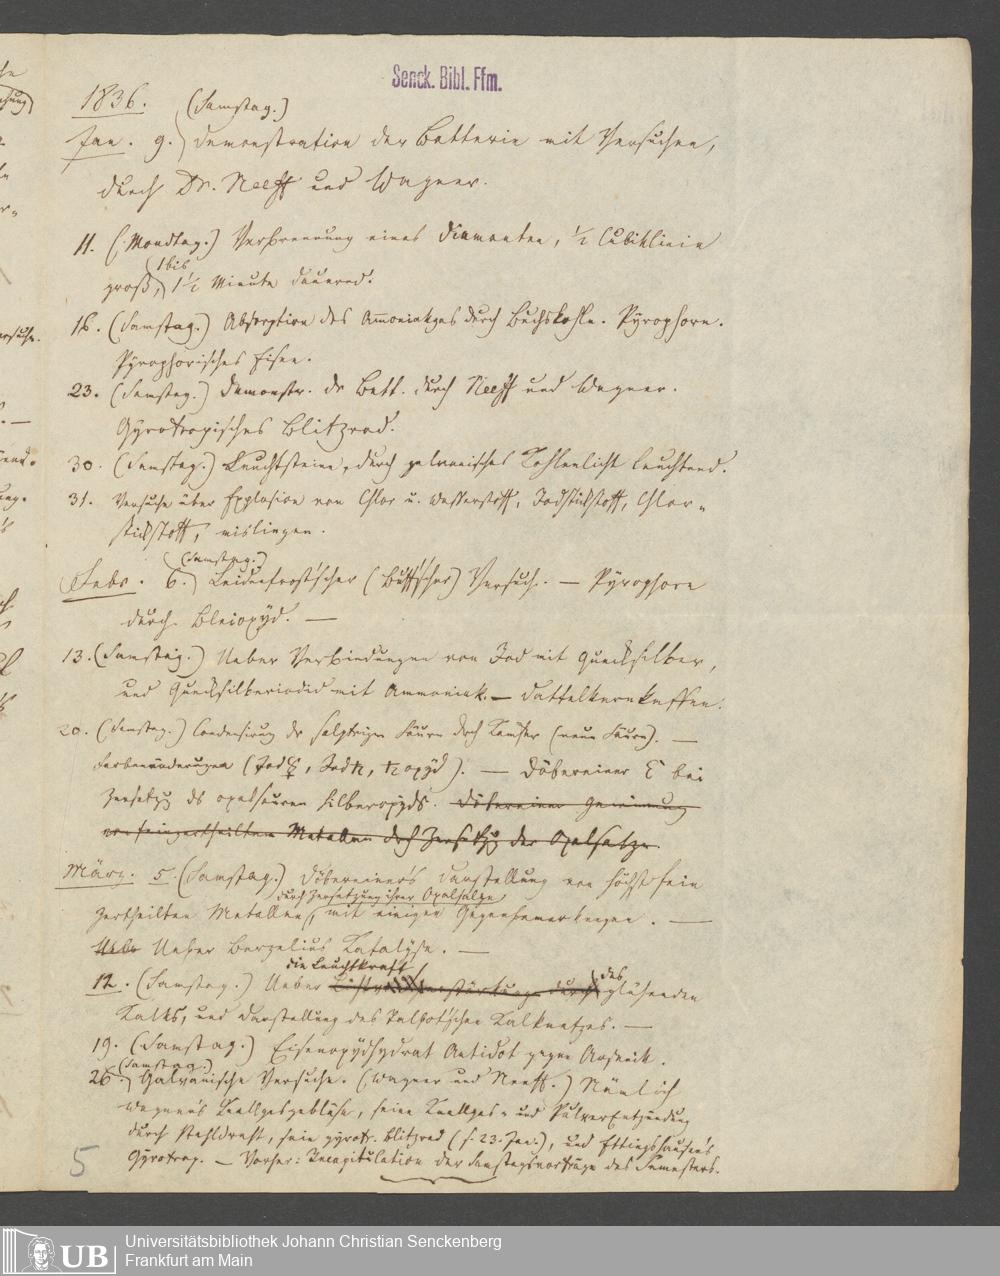 Senck. Bibl. Ffm.
1836. (Samstag.)
Jan. 9. Demonstration der Batterie mit Versuchen,
durch Dr. Neeff und Wagner.
11. (Mondtag.) Verbrennung eines Diamanten, ½ Cubiklinie
1 bis
groß, 1½ Minute dauernd.
16. (Samstag.) Absorption des Ammoniakgas durch Buchskohle. Pyrophore.
Pyrophorisches Eisen.
23. (Samstag.) Demonstr. dr Batt. durch Neeff und Wagner.
Gyrotropisches Blitzrad.
30. (Samstag.) Leuchtsteine, durch galvanisches Kohlenlicht leuchtend.
31. Versuche über Explosion von Chlor u. Wasserstoff, Jodstickstoff, Chlor-
stickstoff, mislingen.
(Samstag.)
Febr. 6. Leidenfrost'scher (Buff'scher) Versuch. — Pyrophore
durch Bleioxyd. —
13. (Samstag.) Ueber Verbindungen von Jod mit Quecksilber,
und Quecksilberiodid mit Ammoniak. — Dattelkernkaffee.
20. (Samstag.) Condensirung dr salptrigen Säure dch (neue Säure). —
Farbenänderungen (Jod☿, Jod♄, ♄oxyd). — Döbereiner bei
Zersetzg ds oxalsauren Silberoxyds. Döbereiner Gewinnung
von feinzertheilten Metallen dch Zersetzg der Oxalsalze.
März. 5. (Samstag.) Döbereiner's Darstellung von höchst fein
durch Zersetzung ihrer Oxalsalze
zertheilten Metallen, mit einigen Gegenbemerkungen. —
Uebe Ueber Berzelius Katalyse. —
die Leuchtkraft des
12. (Samstag.) Ueber durch glühenden
Kalks, und Darstellung des Talbot'schen Kalknetzes. —
19. (Samstag.) Eisenoxydhydrat Antidot gegen Arsenik.
(Samstag.)
26. Galvanische Versuche. (Wagner und Neeff.) Nämlich
Wagner's Knallgasgebläse, seine Knallgas- und PulverEntzündung
durch Stahldraht, sein gyrotr. Blitzrad (s. 23. Jan.), und Ettingshausen's
Gyrotrop. — Vorher: Recapitulation der Samstagsvorträge des Semesters.
5
UB
Universitätsbibliothek Johann Christian Senckenberg
Frankfurt am Main